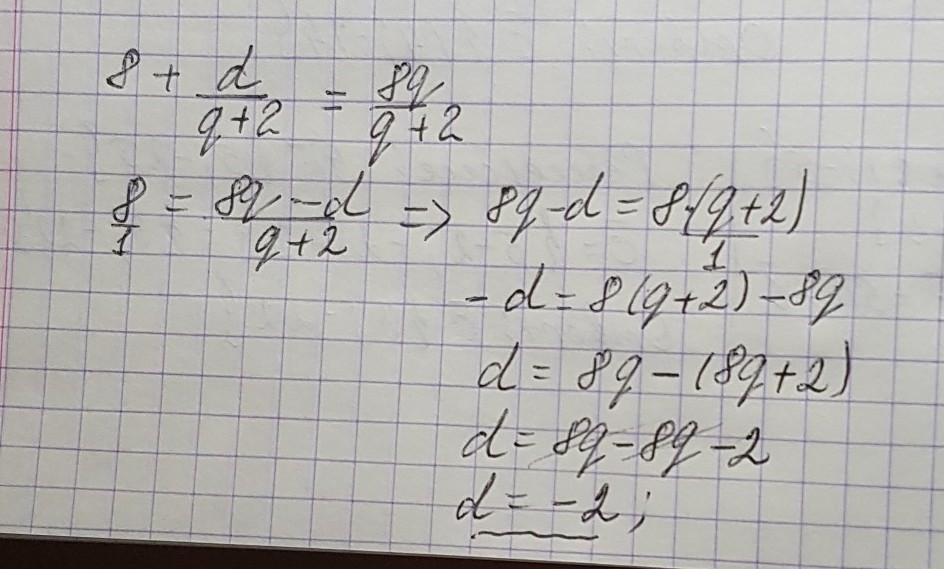 8 + d/(q+2) = 8q/(q+2)
8/1 = (8q-d)/(q+2) => 8q-d = 8·(q+2)/1
-d = 8(q+2)-8q
d = 8q-(8q+2)
d = 8q-8q-2
d = -2;